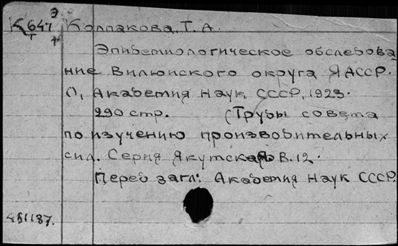 К647 Колпакова, Т. А.
Эпидемиологическое обследова
ние Вилюйского округа ЯАССР.
Л, Академия Наук СССР, 1928.
290 стр. (Труды совета
по изучению производительных
сил. Серия Якутская В. 12.
Перед загл: Академия Наук СССР.